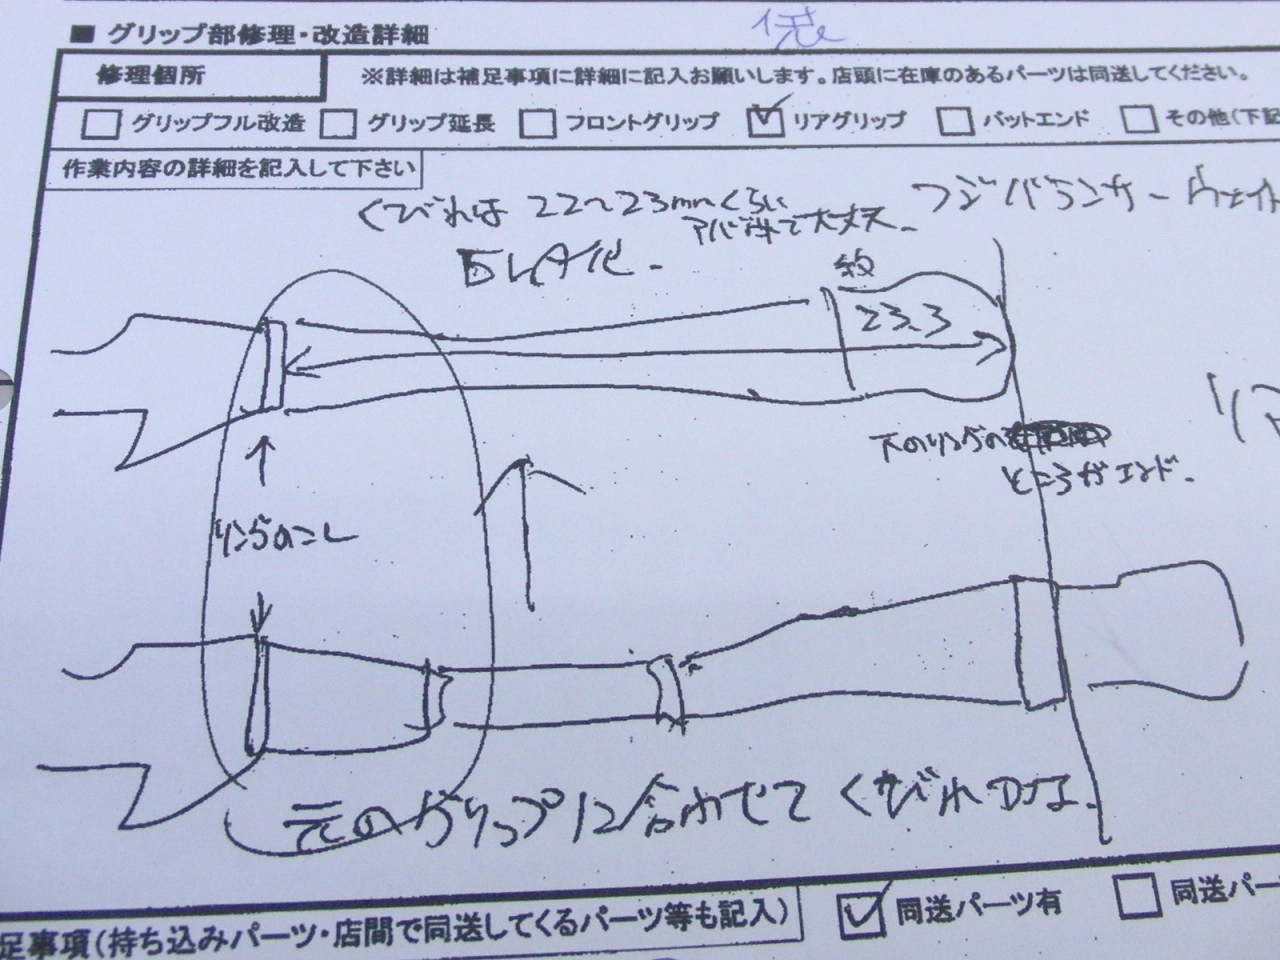 ■ グリップ部修理・改造詳細
修理個所
※詳細は補足事項に詳細に記入お願いします。店頭に在庫のあるパーツは同送してください。
グリップフル改造 グリップ延長 フロントグリップ リアグリップ バットエンド その他(下記
作業内容の詳細を記入して下さい
くびれは 22〜23mmくらい
大丈夫.
フジバランサー ウェイト
約
23.3
下のリングの
ところがエンド.
リングのこし
元のグリップに合わせて くびれつける.
足事項(持ち込みパーツ・店間で同送してくるパーツ等も記入)
同送パーツ有
同送パー